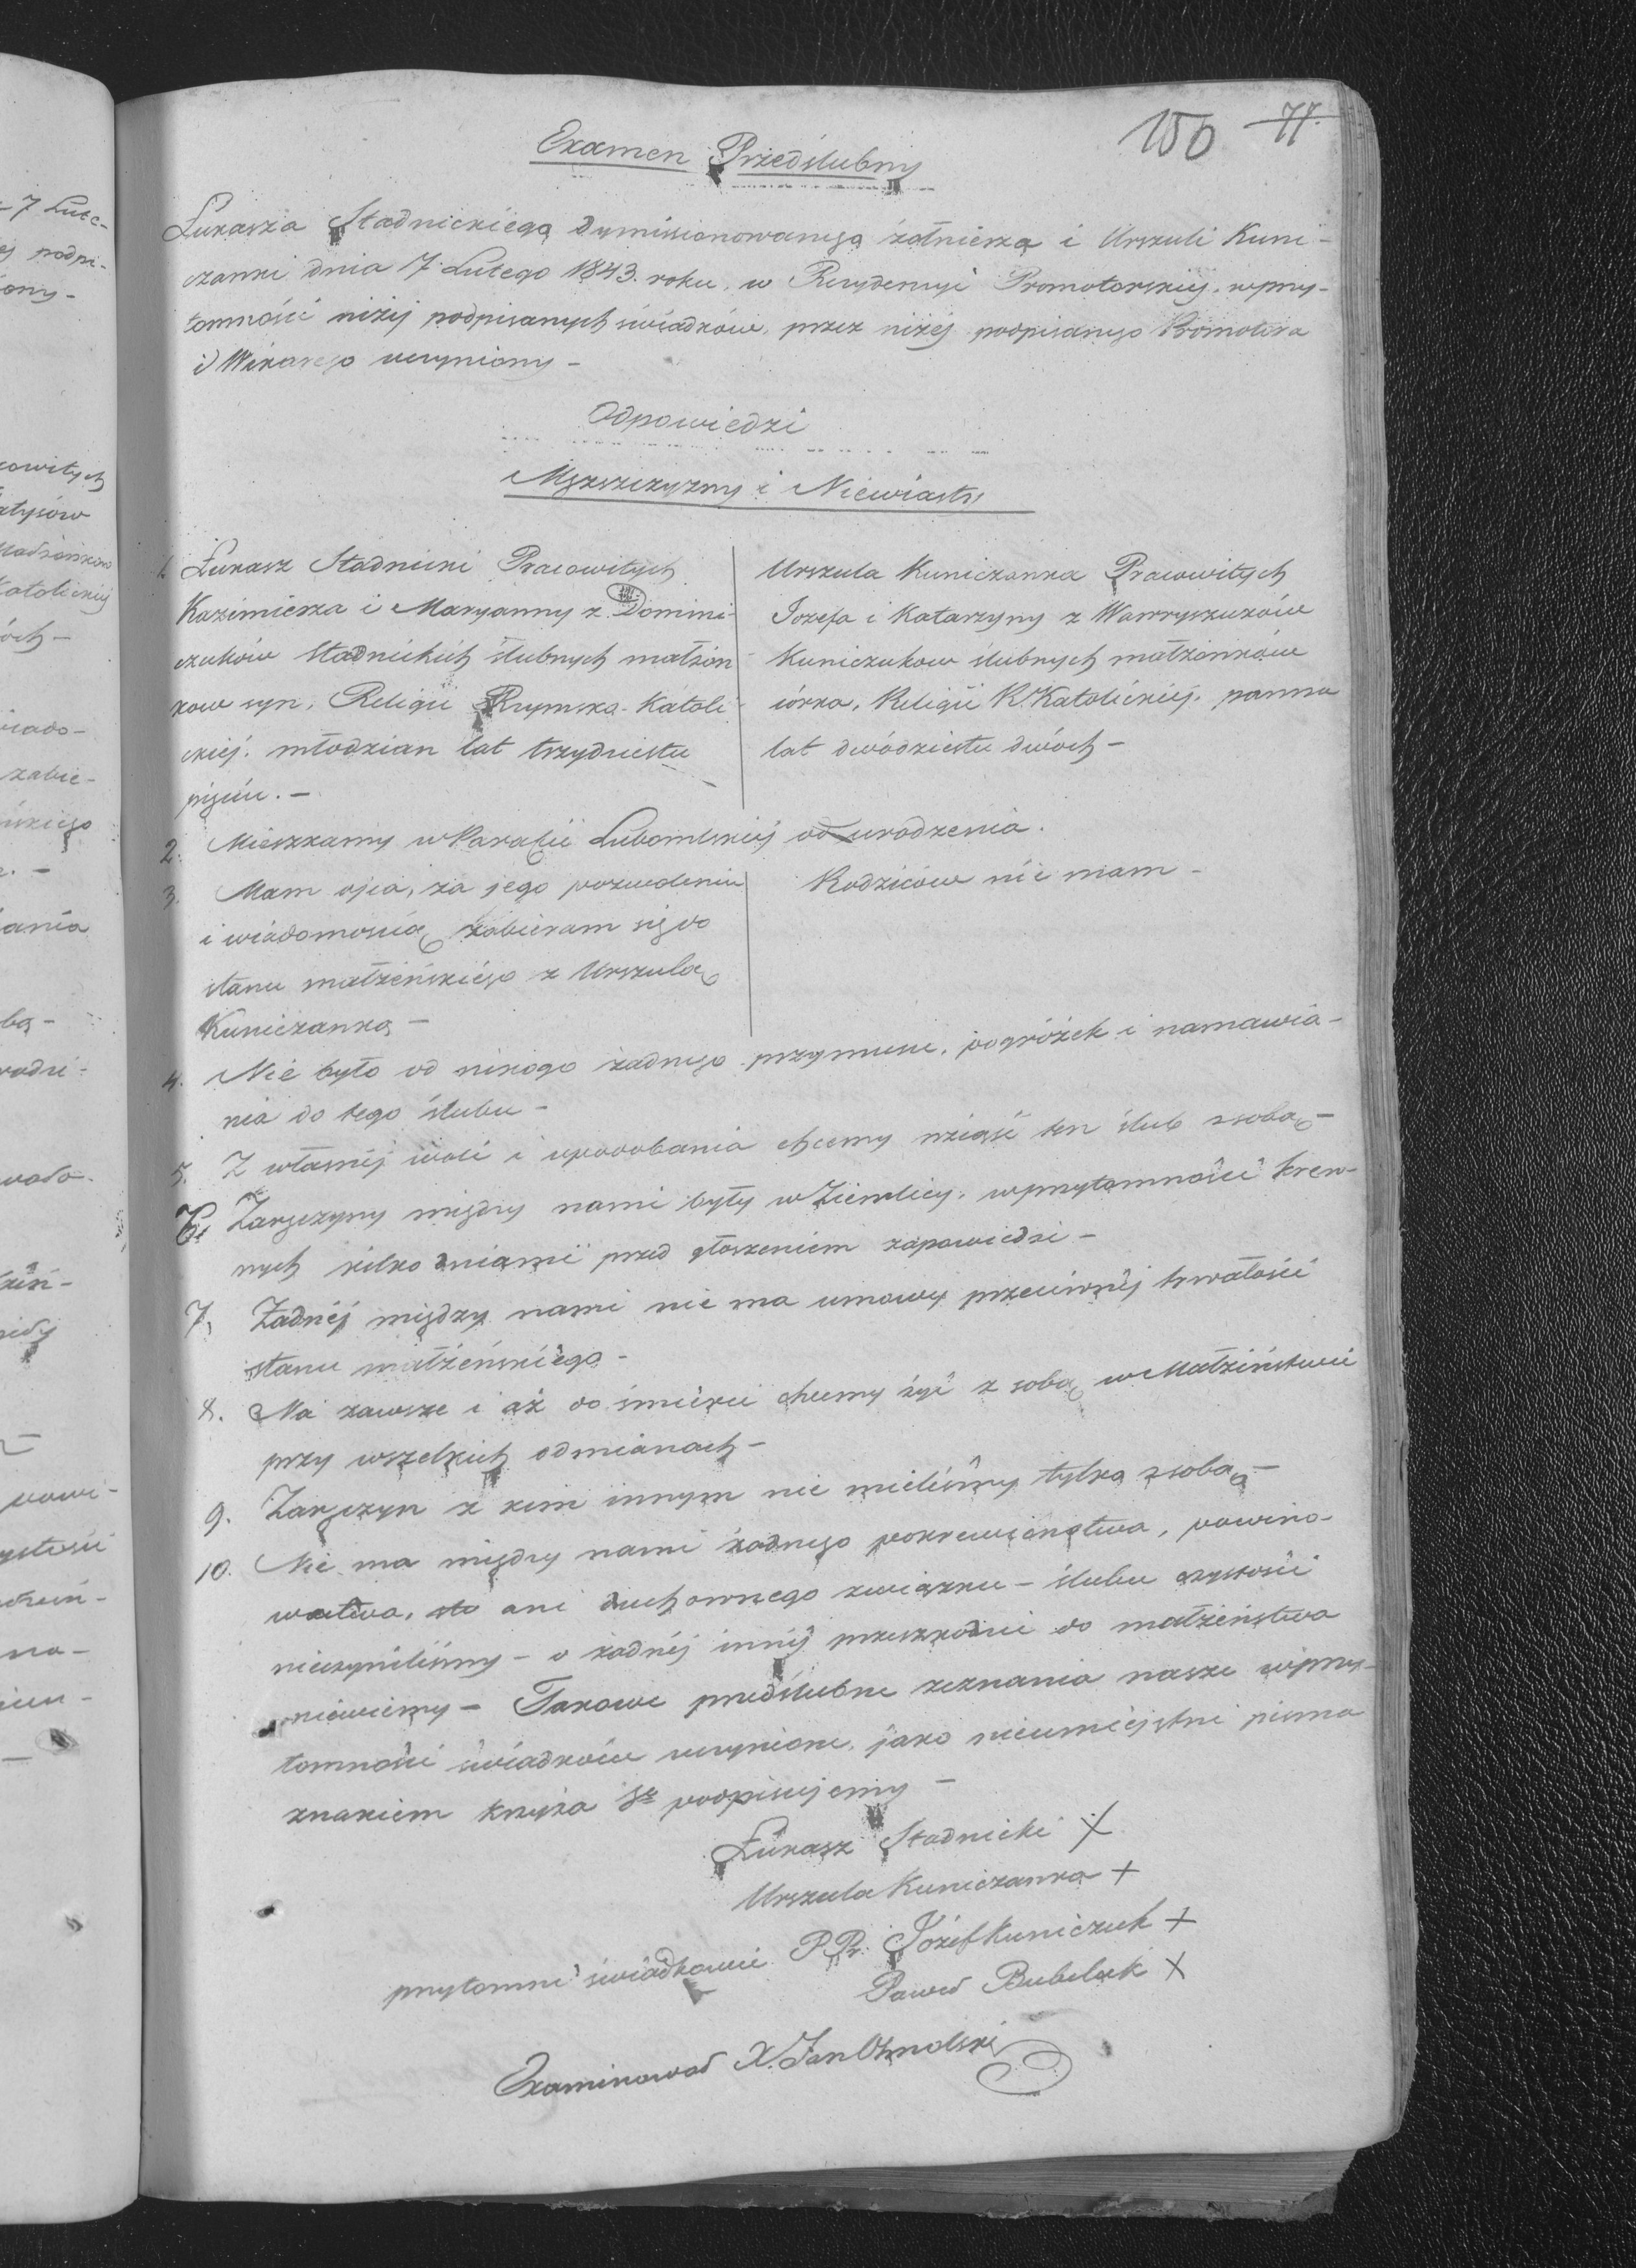 150 77.
Examen Przedślubny
Łukasza Stadnickiego dymissionowanego żołnierza i Urszuli Kuni-
czanki dnia 7. Lutego 1843. roku, w Rezydencyi Promotorskiej, wprzy-
tomności niżej podpisanych świadków, przez niżej podpisanego Promotora
i Wikarego uczyniony –
Odpowiedzi
Męzszczyzny i Niewiasty
1. Łukasz Stadnicki Pracowitych
Kazimierza i Maryanny z Domini-
czuków Stadnickich ślubnych małżon
kow syn, Religii Rzymsko-Katoli-
ckiej. młodzian lat trzydziestu
pięciu. –
Urszula Kuniczanka Pracowitych
Jozefa i Katarzyny z Wawryszuków
Kuniczukow ślubnych małżonków
córka, Religii R. Katolickiej. panna
lat dwódziestu dwóch –
2. Mieszkamy w Parafii Lubomlskiej od urodzenia.
3. Mam ojca, za jego pozwoleniem
i wiadomością zabieram się do
stanu małżeńskiego z Urszulą
Kuniczanką –
Rodziców nie mam –
4. Nie było od nikogo żadnego przymusu, pogróżek i namawia-
nia do tego ślubu –
5. Z własnéj woli i upodobania chcemy wziąść ten ślub z sobą –
6. Zaręczyny między nami były w Ziemlicy, wprzytomności krew-
nych kilko dniami przed głoszeniem zapowiedzi –
7. Żadnéj między nami nie ma umowy przeciwnéj trwałości
stanu małżeńskiego –
8. Na zawsze i aż do śmierci chcemy żyć z sobą w Małżiństwie
przy wszelkich odmianach –
9. Zaręczyn z kim innym nie mieliśmy tylko z sobą –
10. Nie ma między nami żadnego pokrewieństwa, powino-
wactwa, ani duchownego związku – ślubu czystości
nieczyniliśmy – o żadnéj innéj przeszkodzie do małżeństwa
niewiemy – Takowe przedślubne zeznania nasze wprzy-
tomności świadków uczynione, jako nieumiejętni pisma
znakiem krzyża Sgo podpisujemy –
Łukasz Stadnicki X
Urszula Kuniczanka +
przytomni świadkowie PPr. Józef Kuniczuk +
Paweł Bubeluk X
Examinował X. Jan Ohmolski